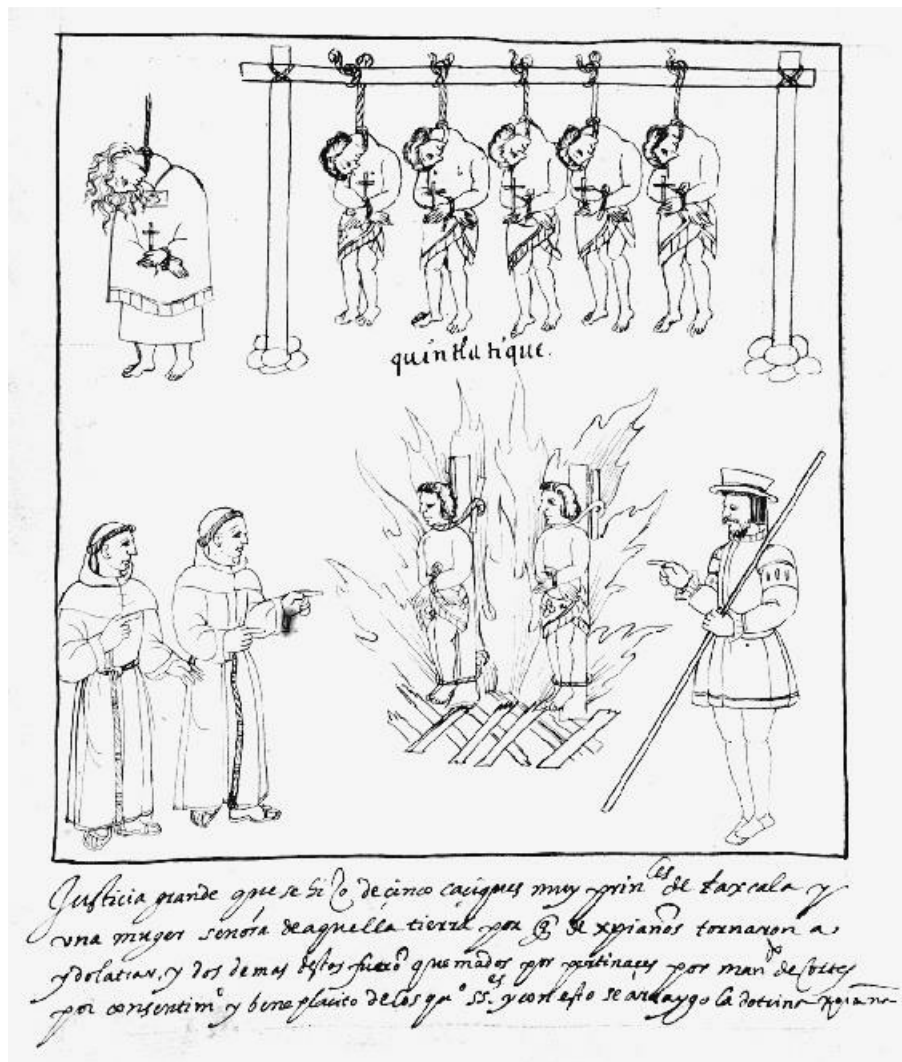 quintlatique.
Justicia grande que se hiço de cinco caciques muy prin^es de taxcala y
una muger señora de aquella tierra por q̃ de xpianos tornaron a
ydolatrar, y dos demas destos fuerõ quemados por pertinaçes por man^do de Cortes
por consentim^o y beneplacito de los qu^o ss^es, y con esto se arraygo la dotrina xpiana